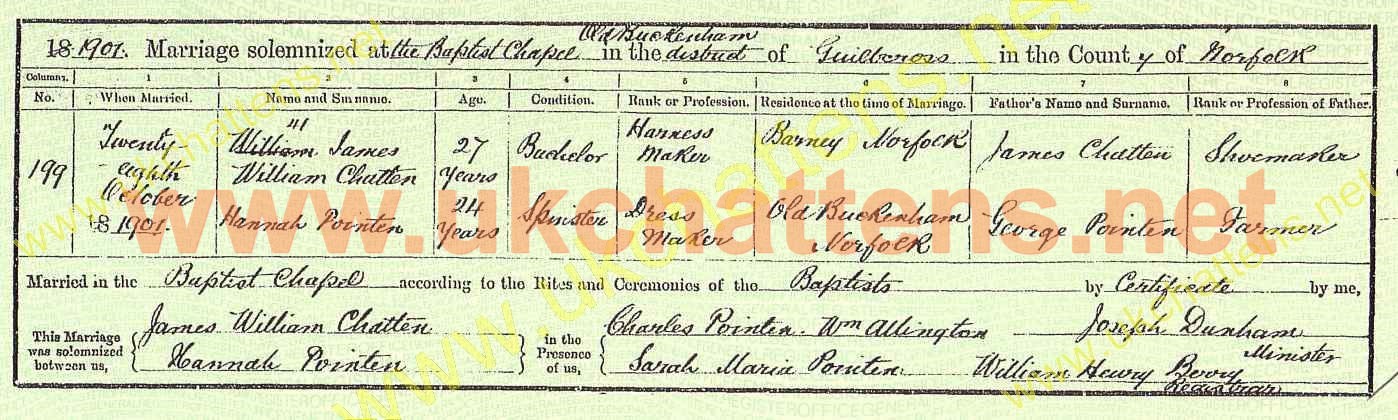 Old Buckenham
18 1901. Marriage solemnized at the Baptist Chapel in the district of Guiltcross in the County of Norfolk
Columns. 1 2 3 4 5 6 7 8
No. When Married. Name and Surname. Age. Condition. Rank or Profession. Residence at the time of Marriage. Father's Name and Surname. Rank or Profession of Father.
199 Twenty-eighth October 18 1901. William James William Chatten 27 Years Bachelor Harness Maker Barney Norfolk James Chatten Shoemaker
Hannah Pointen 24 Years Spinster Dress Maker Old Buckenham Norfolk George Pointen Farmer
Married in the Baptist Chapel according to the Rites and Ceremonies of the Baptists by Certificate by me,
This Marriage was solemnized between us, James William Chatten Hannah Pointen in the Presence of us, Charles Pointen. Wm Allington Sarah Maria Pointen. Joseph Dunham Minister
William Henry Berry Registrar
www.ukchattens.net